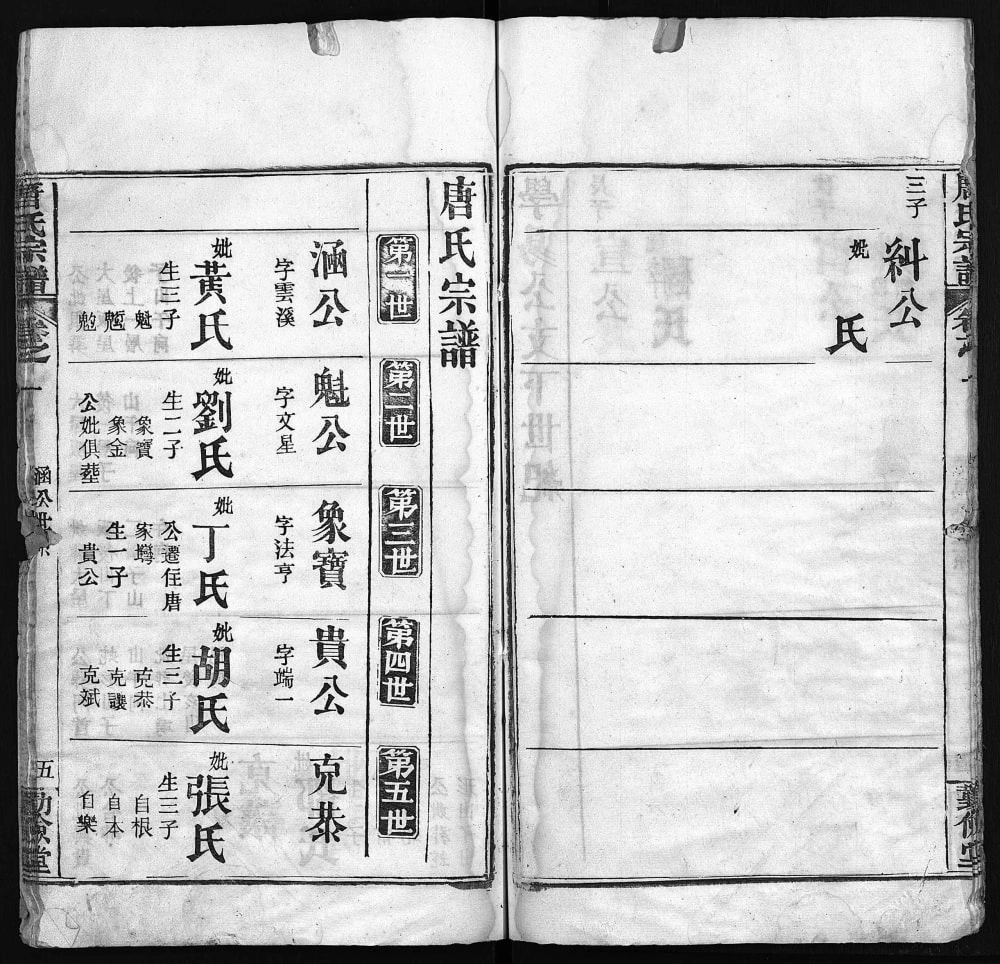 三子
糾公
妣
氏
唐氏宗譜
第一世
涵公
字雲溪
妣
黃氏
生三子
魁
魓
魀
第二世
魁公
字文星
妣
劉氏
生二子
象寶
象金
公妣俱塟
第三世
象寶
字法亨
妣
丁氏
公遷住唐
家塆
生一子
貴公
第四世
貴公
字端一
妣
胡氏
生三子
克恭
克讓
克斌
第五世
克恭
妣
張氏
生三子
自根
自本
自樂
唐氏宗譜
卷之一
涵公世系
五
勤儉堂